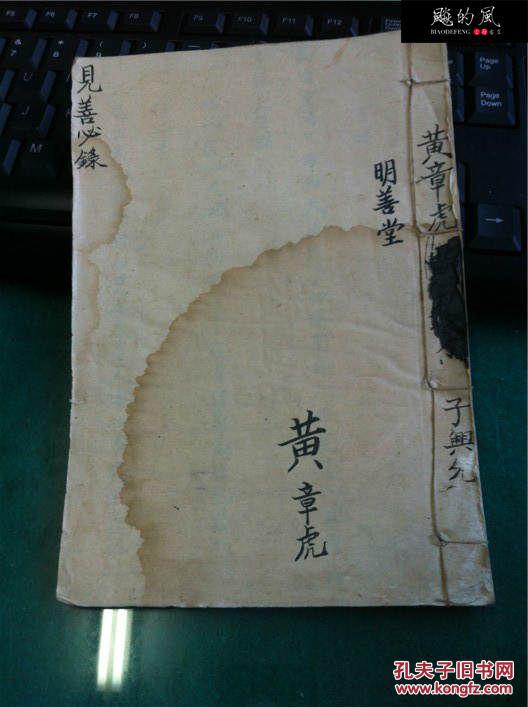 飚的風
BIAODEFENG
黄章虎
子興允
明善堂
見善必錄
黄章虎
F7
F9
F10
F11
F12
Page
Up
Page
Down
孔夫子旧书网
www.kongfz.com